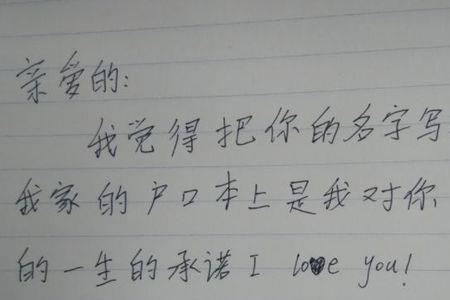 亲爱的:
我觉得把你的名字写
我家的户口本上是我对你
的一生的承诺 I love you!